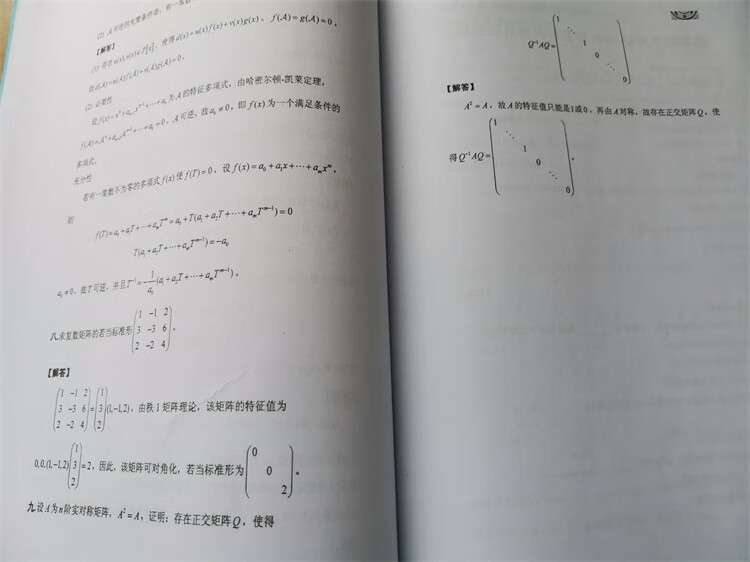 (2) A可逆的充要条件是:有一常数
【解答】
(1) 存在u(x),v(x)∈P[x],使得d(x)=u(x)f(x)+v(x)g(x),f(A)=g(A)=0,
故d(A)=u(A)f(A)+v(A)g(A)=0。
(2) 必要性
设f(x)=xⁿ+aₙ₋₁xⁿ⁻¹+⋯+a₀为A的特征多项式,由哈密尔顿-凯莱定理,
f(A)=Aⁿ+aₙ₋₁Aⁿ⁻¹+⋯+a₀=0,A可逆,故a₀≠0,即f(x)为一个满足条件的
多项式。
充分性
若有一常数不为零的多项式f(x)使f(T)=0,设f(x)=a₀+a₁x+⋯+aₘxᵐ,
则
f(T)=a₀+a₁T+⋯+aₘTᵐ=a₀+T(a₁+a₂T+⋯+aₘTᵐ⁻¹)=0
T(a₁+a₂T+⋯+aₘTᵐ⁻¹)=-a₀
a₀≠0,故T可逆,并且T⁻¹=-1/a₀(a₁+a₂T+⋯+aₘTᵐ⁻¹)。
八.求复数矩阵的若当标准形(1 -1 2
3 -3 6
2 -2 4)。
【解答】
(1 -1 2
3 -3 6
2 -2 4)=(1
3
2)(1,-1,2),由秩1矩阵理论,该矩阵的特征值为
0,0,(1,-1,2)(1
3
2)=2,因此,该矩阵可对角化,若当标准形为(0
0
2)。
九.设A为n阶实对称矩阵,A²=A,证明:存在正交矩阵Q,使得
Q⁻¹AQ=(1
⋱
1
0
⋱
0)
【解答】
A²=A,故A的特征值只能是1或0,再由A对称,故存在正交矩阵Q,使
得Q⁻¹AQ=(1
⋱
1
0
⋱
0)。